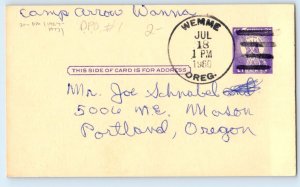 Camp Arrow Wanna
DPO #1 2-
WEMME
JUL
18
1 PM
1960
OREG.
THIS SIDE OF CARD IS FOR ADDRESS
Mr. Joe Schnabel
5006 N.E. Mason
Portland, Oregon